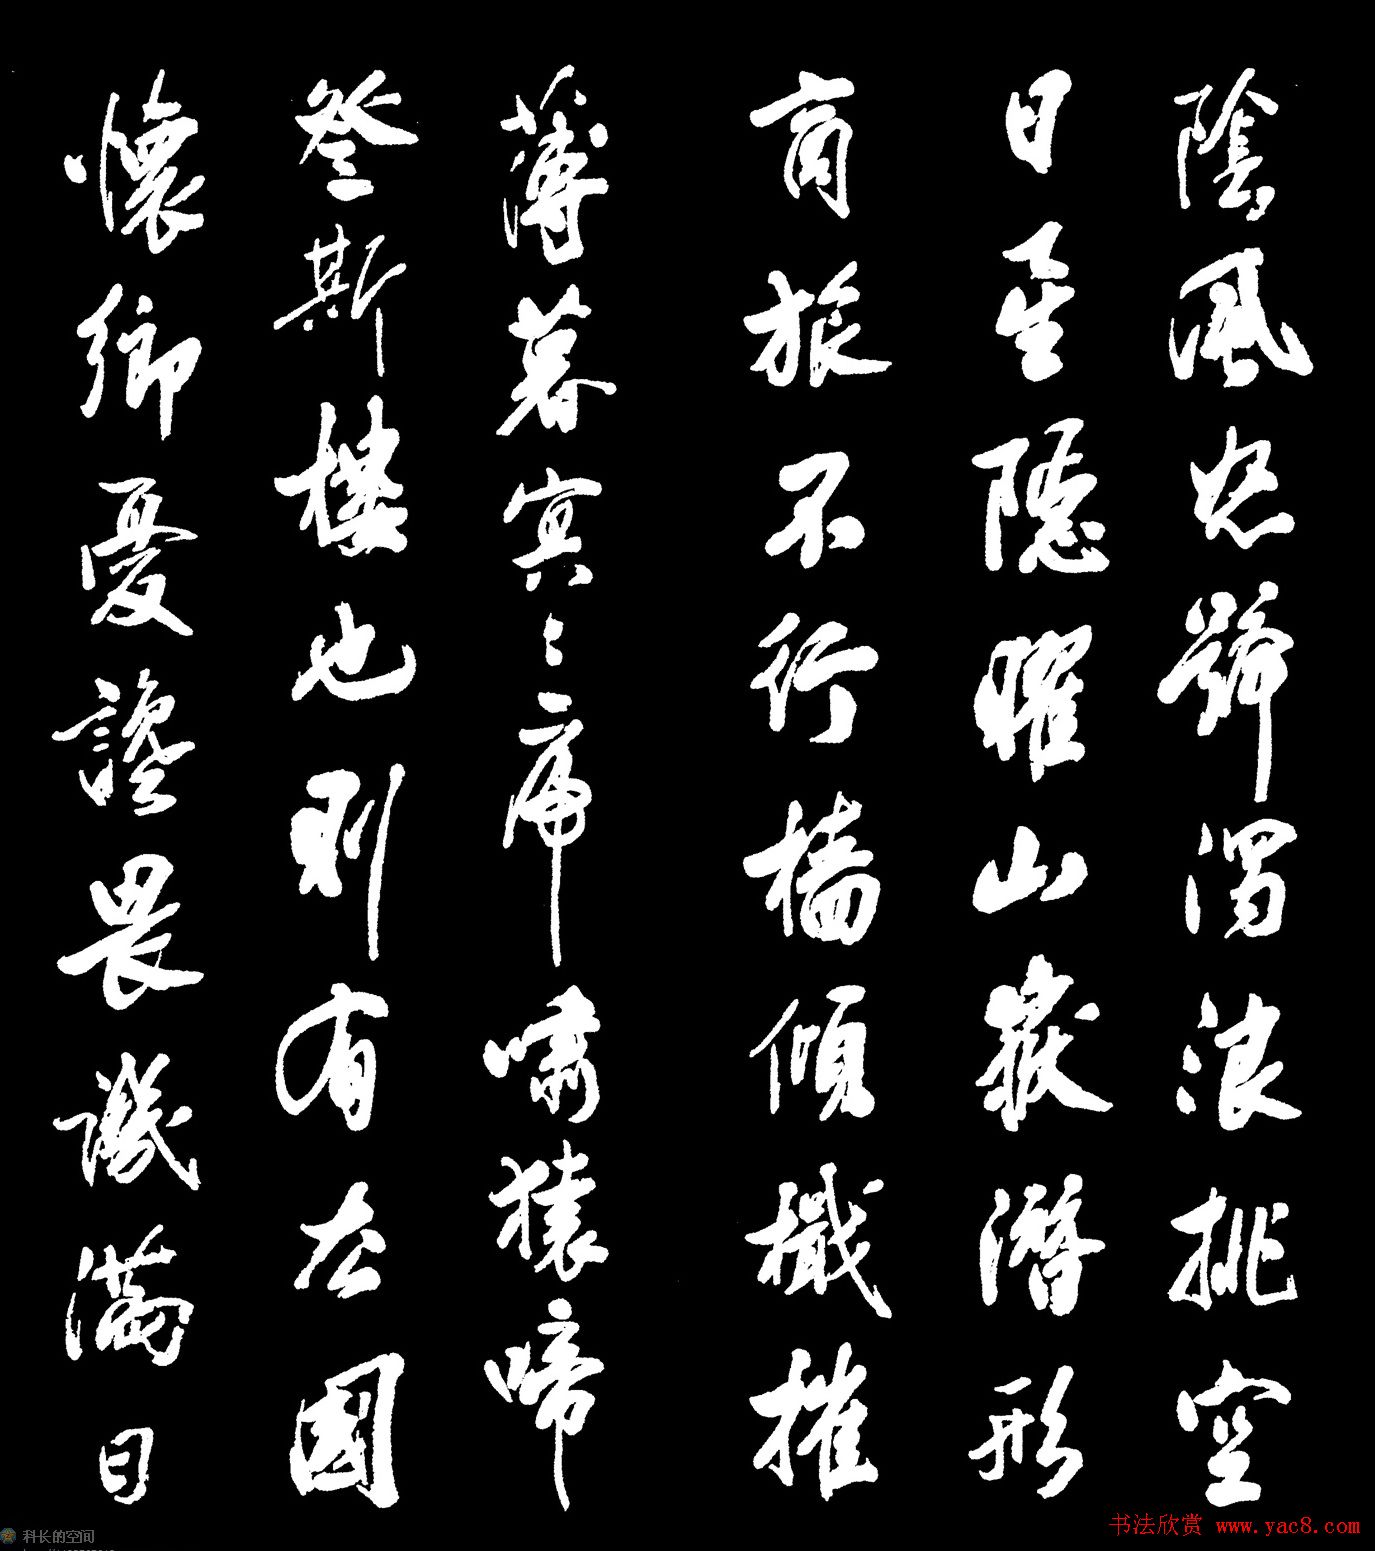 陰風怒號濁浪排空
日星隱曜山嶽潛形
商旅不行檣傾檝摧
薄暮冥〻虎嘯猿啼
登斯樓也則有去國
懷鄉憂讒畏譏滿目
科长的空间
书法欣赏 www.yac8.com